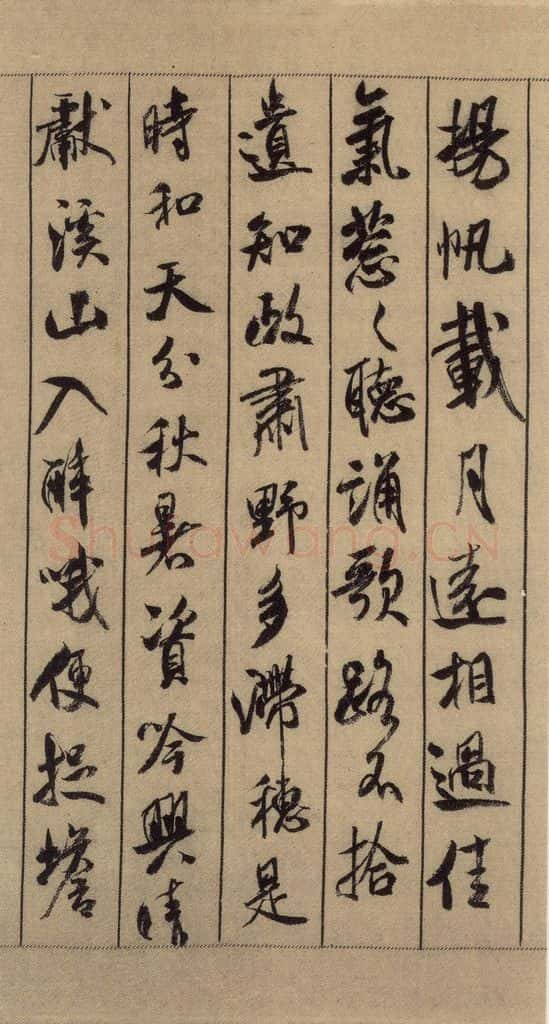 揚帆載月遠相過佳
氣葱々聽誦歌路不拾
遺知政肅野多滯穗是
時和天分秋暑資吟興晴
獻溪山入醉哦便捉蟾
Shufawang.CN